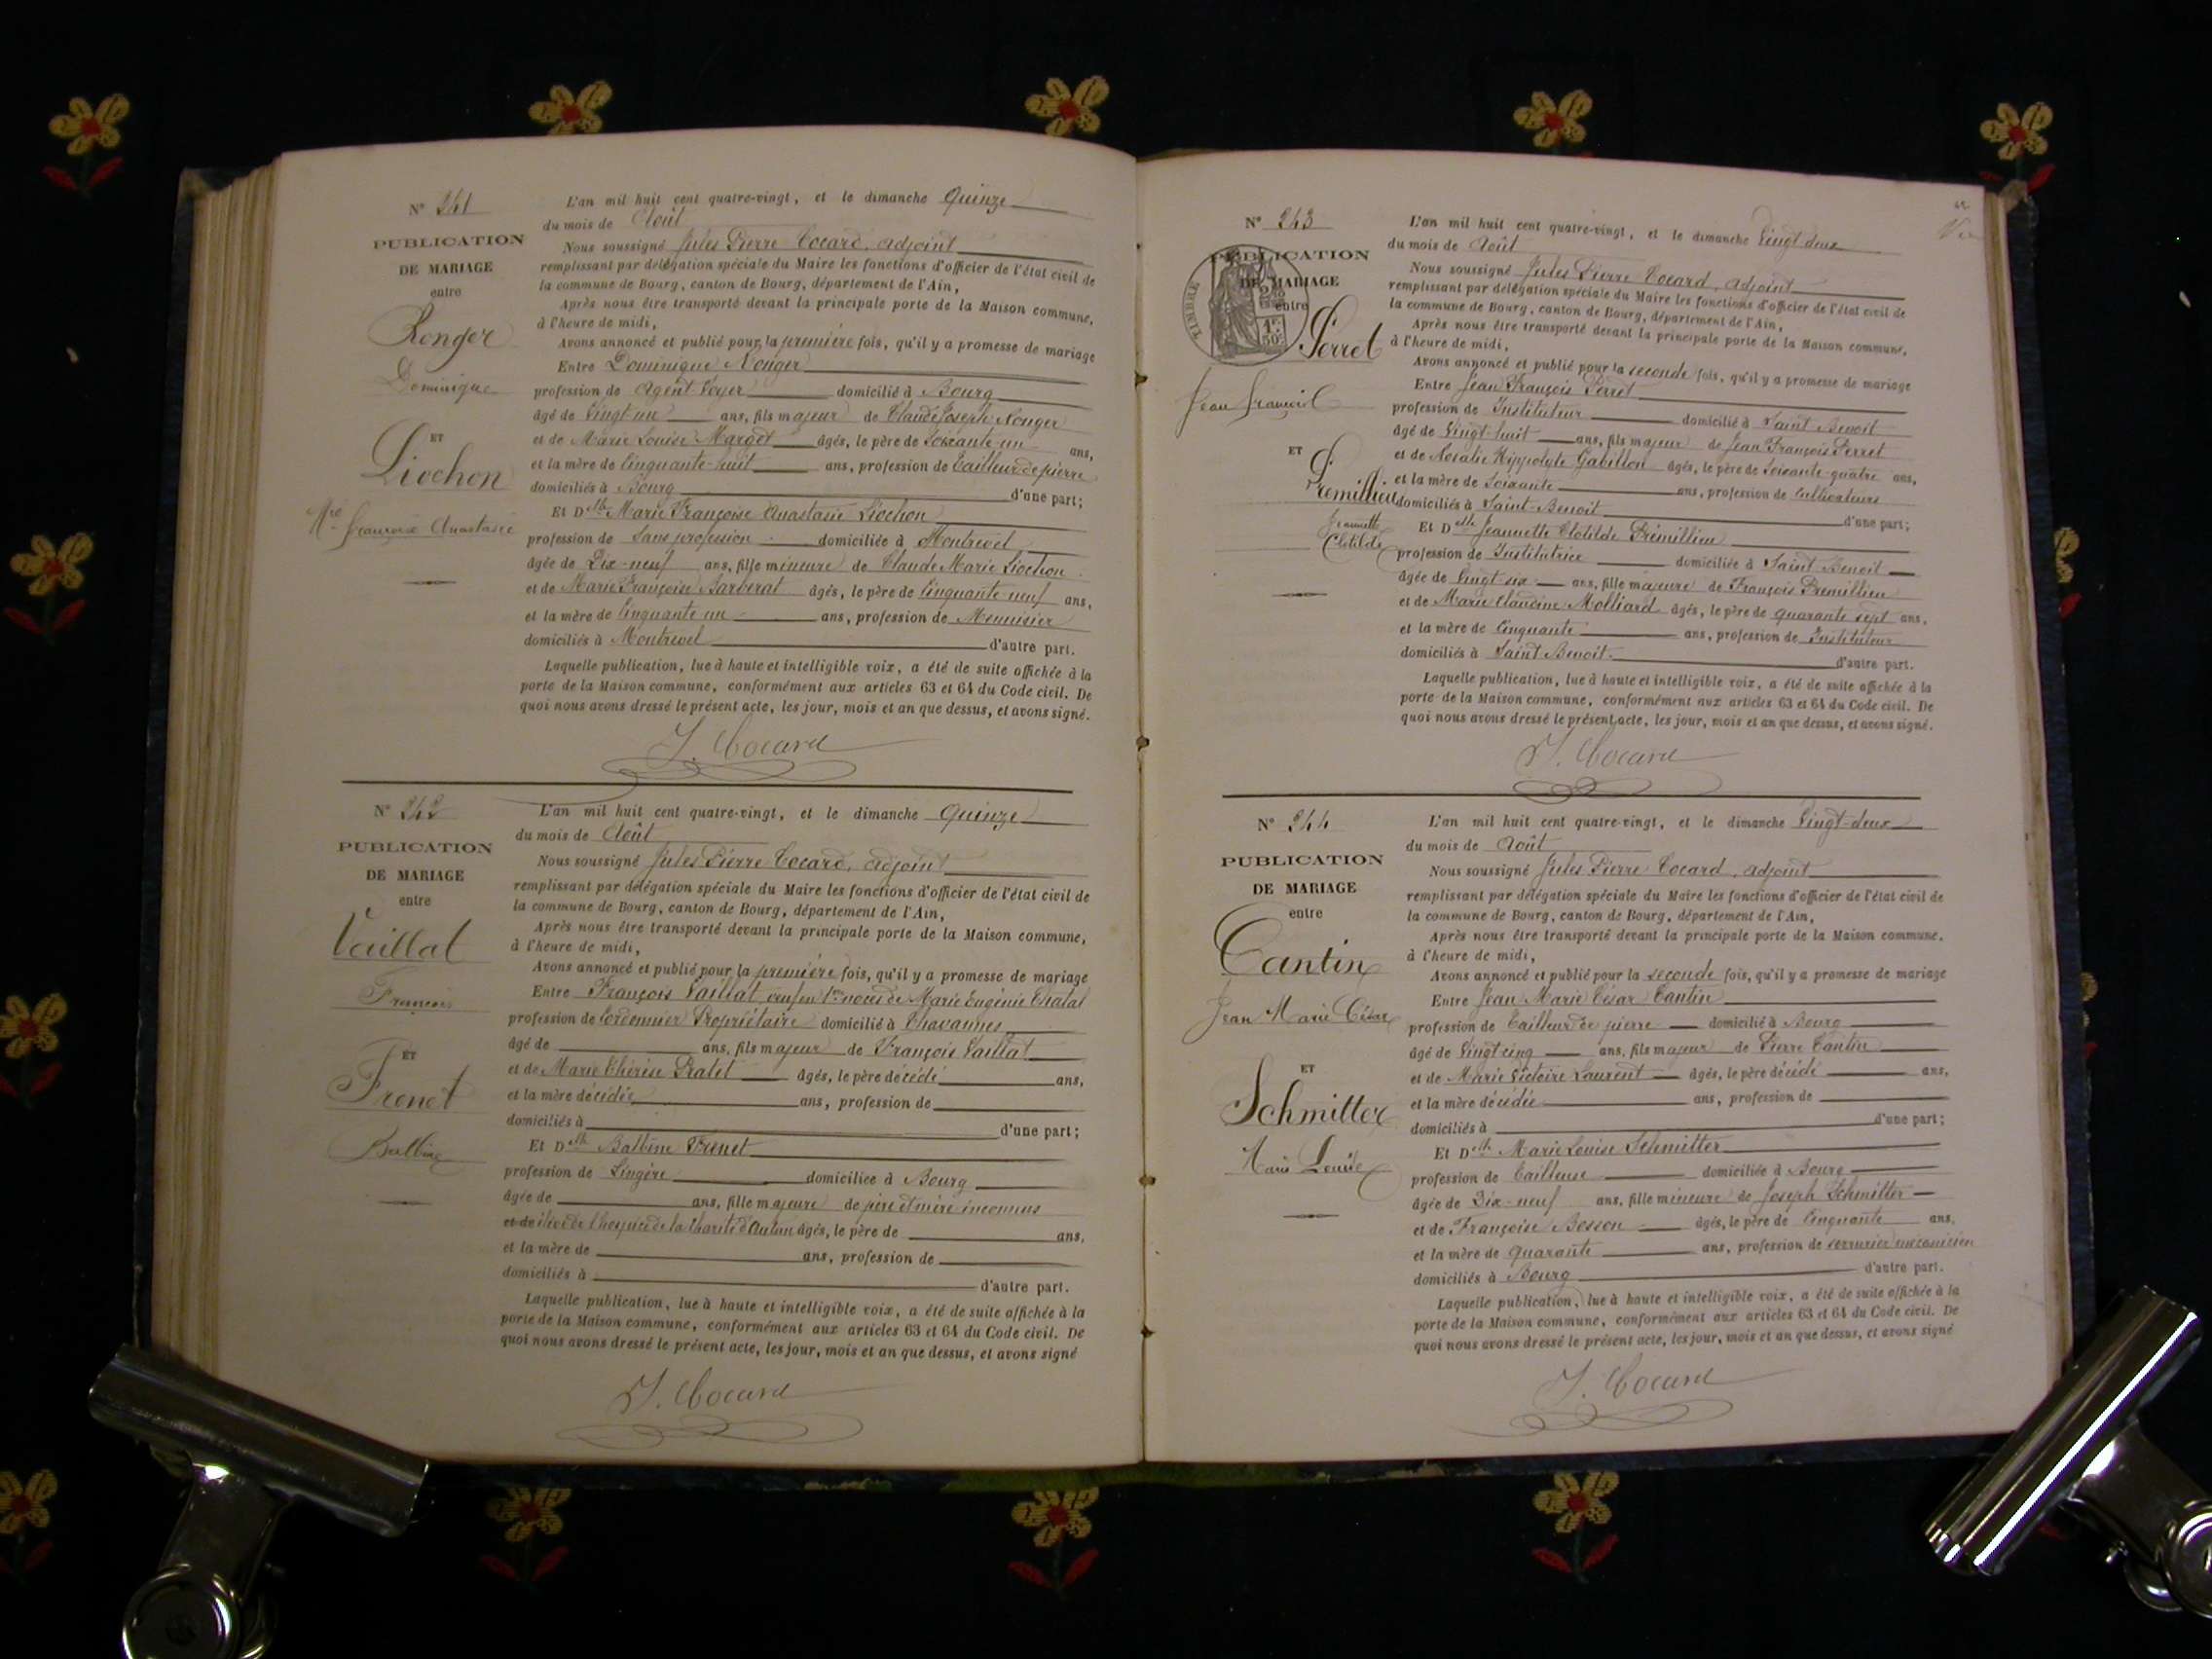 N° 241
PUBLICATION
DE MARIAGE
entre
Ronger
Dominique
ET
Liochon
Mie françoise Anastasie
L'an mil huit cent quatre-vingt, et le dimanche Quinze
du mois de Août
Nous soussigné Jules Pierre Cocard, adjoint
remplissant par délégation spéciale du Maire les fonctions d'officier de l'état civil de
la commune de Bourg, canton de Bourg, département de l'Ain,
Après nous être transporté devant la principale porte de la Maison commune,
à l'heure de midi,
Avons annoncé et publié pour la première fois, qu'il y a promesse de mariage
Entre Dominique Ronger
profession de Agent Voyer domicilié à Bourg
âgé de Vingt un ans, fils majeur de Claude Joseph Ronger
et de Marie Louise Margot âgés, le père de Soixante un ans,
et la mère de Cinquante-huit ans, profession de Tailleur de pierre
domiciliés à Bourg d'une part;
Et Delle Marie Françoise Anastasie Liochon
profession de Sans profession domiciliée à Montrevel
âgée de Dix-neuf ans, fille mineure de Claude Marie Liochon
et de Marie Françoise Barberat âgés, le père de Cinquante neuf ans,
et la mère de Cinquante un ans, profession de Menuisier
domiciliés à Montrevel d'autre part.
Laquelle publication, lue à haute et intelligible voix, a été de suite affichée à la
porte de la Maison commune, conformément aux articles 63 et 64 du Code civil. De
quoi nous avons dressé le présent acte, les jour, mois et an que dessus, et avons signé.
J. Cocard
N° 242
PUBLICATION
DE MARIAGE
entre
Vaillat
François
ET
Frenet
Balbine
L'an mil huit cent quatre-vingt, et le dimanche Quinze
du mois de Août
Nous soussigné Jules Pierre Cocard, adjoint
remplissant par délégation spéciale du Maire les fonctions d'officier de l'état civil de
la commune de Bourg, canton de Bourg, département de l'Ain,
Après nous être transporté devant la principale porte de la Maison commune,
à l'heure de midi,
Avons annoncé et publié pour la première fois, qu'il y a promesse de mariage
Entre François Vaillat, veuf en 1res noces de Marie Eugénie Chatal
profession de Cordonnier Propriétaire domicilié à Chavannes
âgé de ans, fils majeur de François Vaillat
et de Marie Thérèse Pralet âgés, le père décédé ans,
et la mère décédée ans, profession de
domiciliés à d'une part;
Et Delle Balbine Frenet
profession de Lingère domiciliée à Bourg
âgée de ans, fille majeure de père et mère inconnus
et de élève de l'hospice de la Charité d'Autun âgés, le père de ans,
et la mère de ans, profession de
domiciliés à d'autre part.
Laquelle publication, lue à haute et intelligible voix, a été de suite affichée à la
porte de la Maison commune, conformément aux articles 63 et 64 du Code civil. De
quoi nous avons dressé le présent acte, les jour, mois et an que dessus, et avons signé
J. Cocard
N° 243
PUBLICATION
DE MARIAGE
entre
TIMBRE
1fr.
50c.
Perret
Jean françois
ET
Premillieu
Jeannette
Clotilde
L'an mil huit cent quatre-vingt, et le dimanche Vingt-deux
du mois de Août
Nous soussigné Jules Pierre Cocard, adjoint
remplissant par délégation spéciale du Maire les fonctions d'officier de l'état civil de
la commune de Bourg, canton de Bourg, département de l'Ain,
Après nous être transporté devant la principale porte de la Maison commune,
à l'heure de midi,
Avons annoncé et publié pour la seconde fois, qu'il y a promesse de mariage
Entre Jean François Perret
profession de Instituteur domicilié à Saint Benoit
âgé de Vingt-huit ans, fils majeur de Jean François Perret
et de Rosalie Hippolyte Gabillon âgés, le père de Soixante-quatre ans,
et la mère de Soixante ans, profession de Cultivateurs
domiciliés à Saint-Benoit d'une part;
Et Delle Jeannette Clotilde Prémillieu
profession de Institutrice domiciliée à Saint Benoit
âgée de Vingt-six ans, fille majeure de François Premillieu
et de Marie Claudine Molliard âgés, le père de quarante sept ans,
et la mère de Cinquante ans, profession de Instituteur
domiciliés à Saint Benoit d'autre part.
Laquelle publication, lue à haute et intelligible voix, a été de suite affichée à la
porte de la Maison commune, conformément aux articles 63 et 64 du Code civil. De
quoi nous avons dressé le présent acte, les jour, mois et an que dessus, et avons signé.
J. Cocard
N° 244
PUBLICATION
DE MARIAGE
entre
Cantin
Jean Marie César
ET
Schmitter
Marie Louise
L'an mil huit cent quatre-vingt, et le dimanche Vingt-deux
du mois de Août
Nous soussigné Jules Pierre Cocard, adjoint
remplissant par délégation spéciale du Maire les fonctions d'officier de l'état civil de
la commune de Bourg, canton de Bourg, département de l'Ain,
Après nous être transporté devant la principale porte de la Maison commune,
à l'heure de midi,
Avons annoncé et publié pour la seconde fois, qu'il y a promesse de mariage
Entre Jean Marie César Cantin
profession de Tailleur de pierre domicilié à Bourg
âgé de Vingt cinq ans, fils majeur de Pierre Cantin
et de Marie Victoire Laurent âgés, le père décédé ans,
et la mère décédée ans, profession de
domiciliés à d'une part;
Et Delle Marie Louise Schmitter
profession de Tailleuse domiciliée à Bourg
âgée de Dix-neuf ans, fille mineure de Joseph Schmitter
et de Françoise Besson âgés, le père de Cinquante ans,
et la mère de Quarante ans, profession de serrurier mécanicien
domiciliés à Bourg d'autre part.
Laquelle publication, lue à haute et intelligible voix, a été de suite affichée à la
porte de la Maison commune, conformément aux articles 63 et 64 du Code civil. De
quoi nous avons dressé le présent acte, les jour, mois et an que dessus, et avons signé
J. Cocard